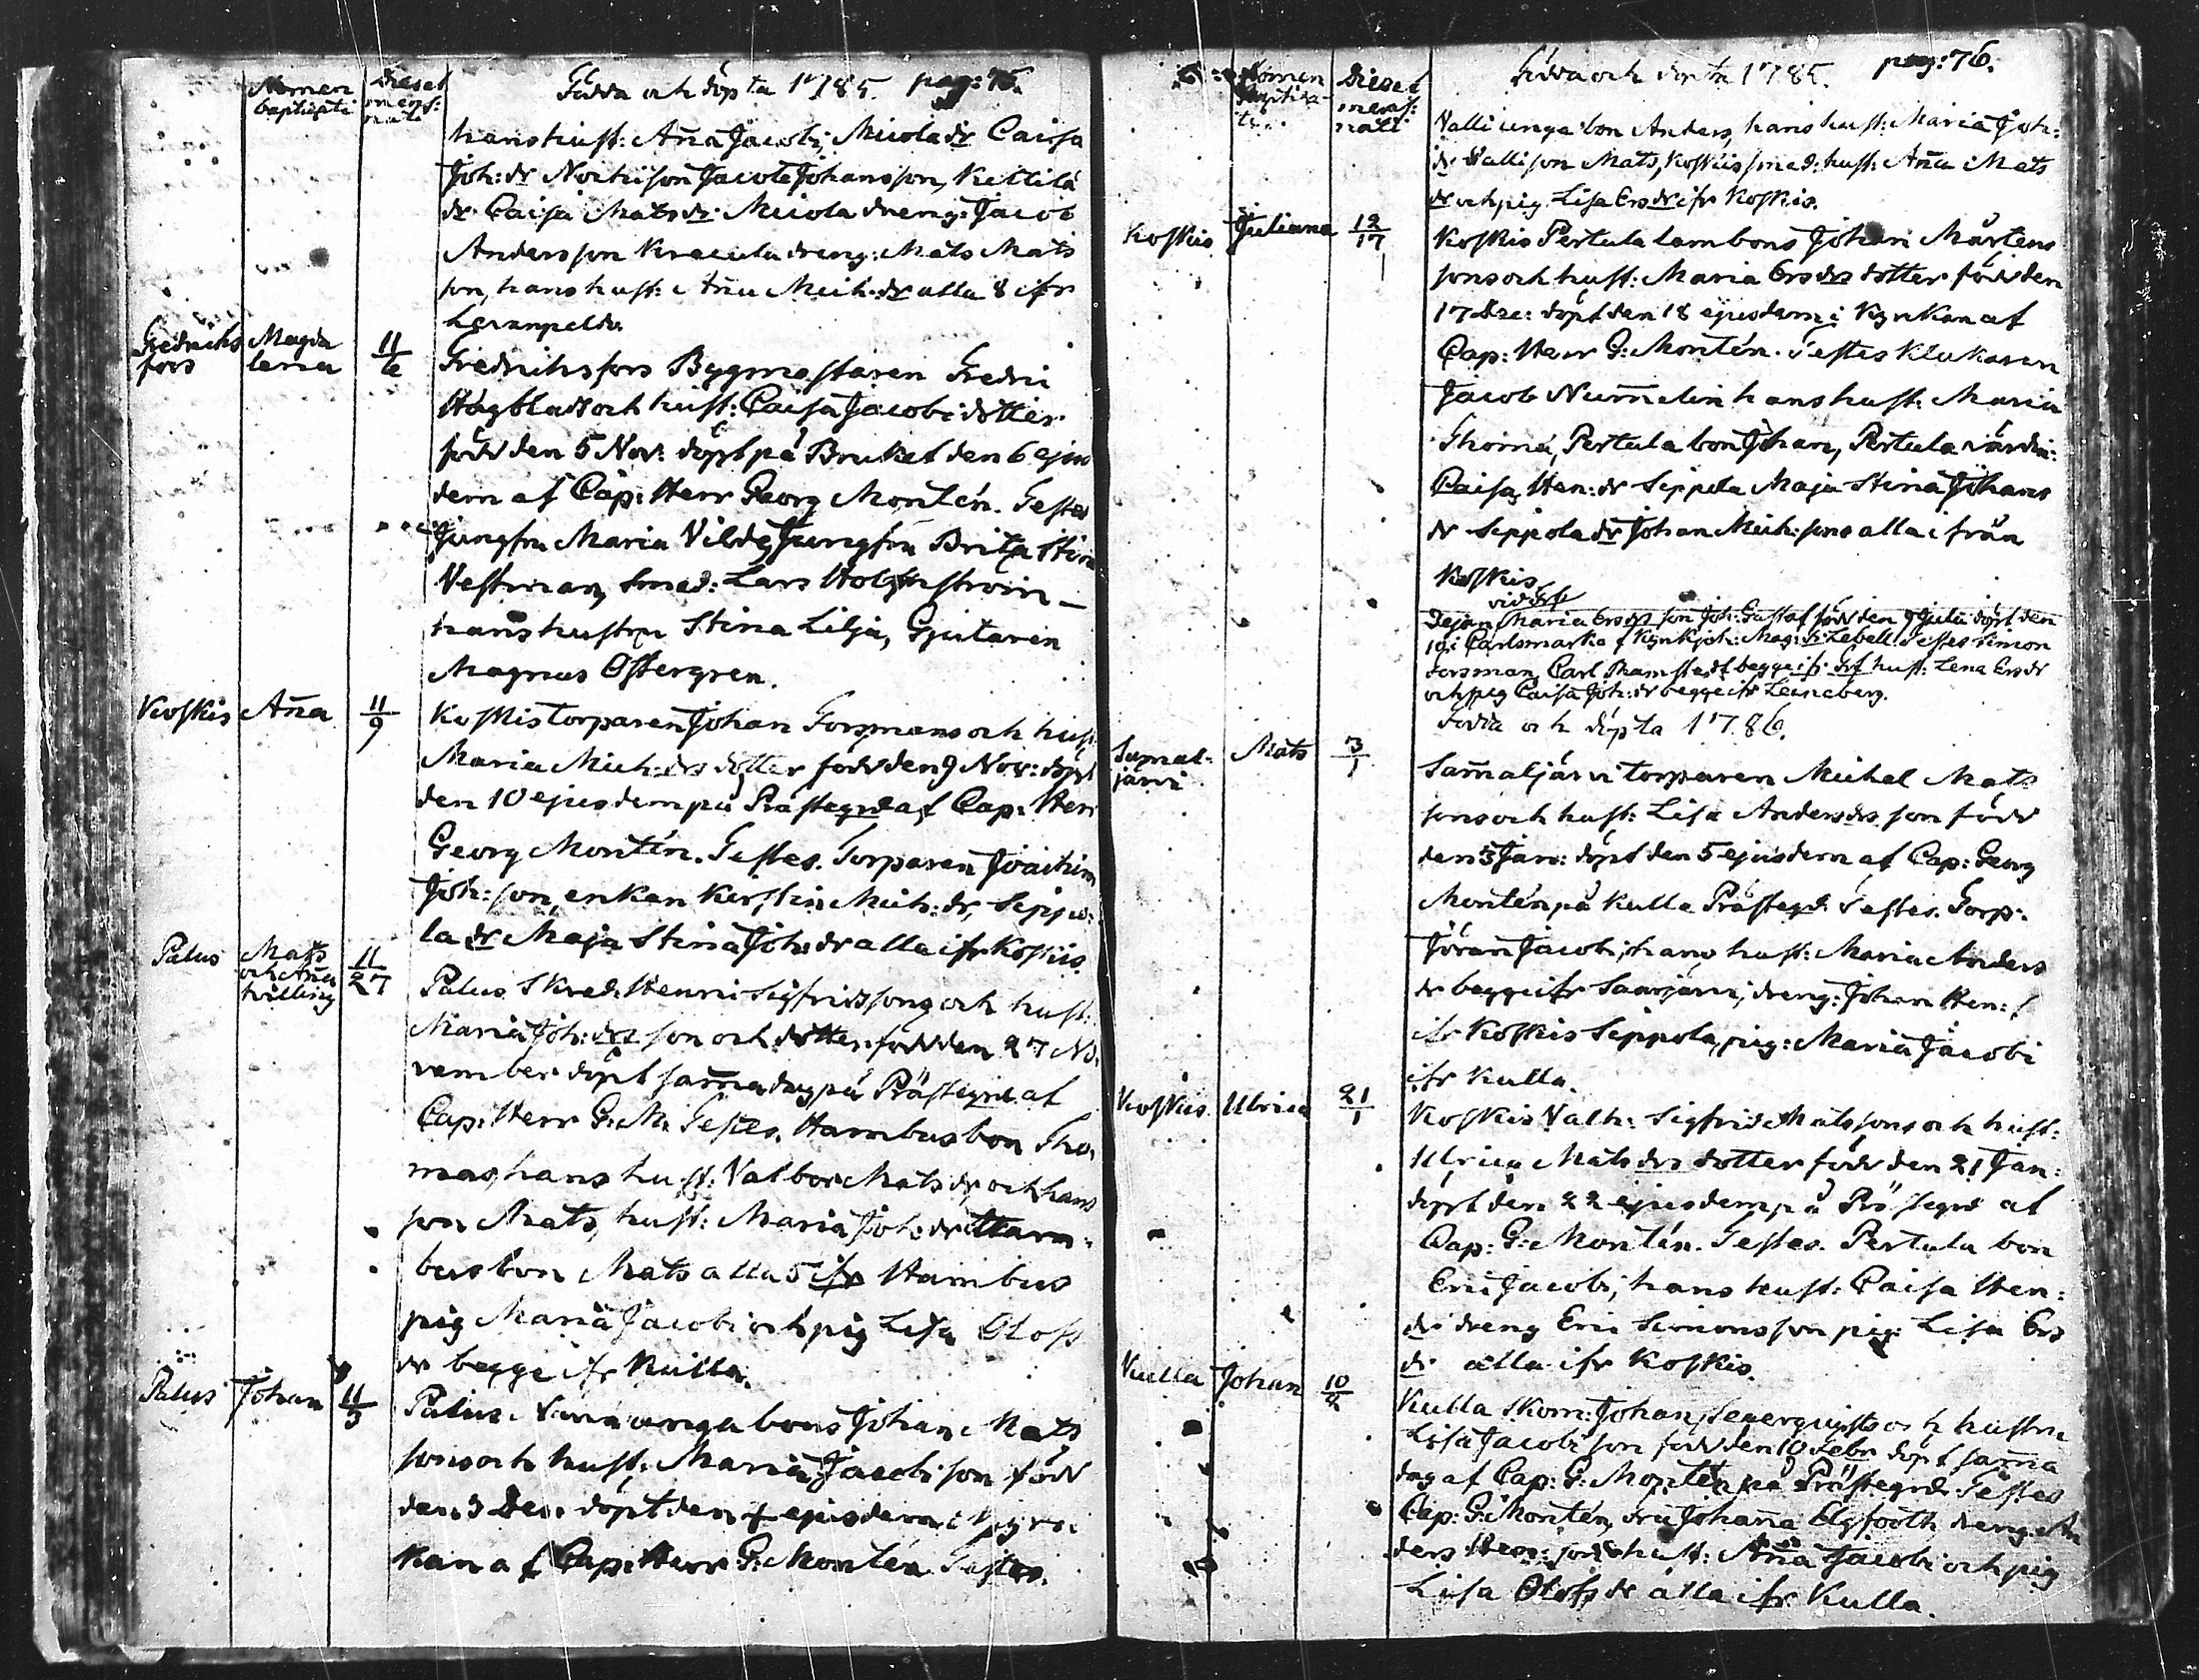 Nomen baptizati
Dies et mens: nati
Födda och döpta 1785. pag: 75.
hans hust: Aña Jacobi, Micola dr Caisa
Joh: dr Nockisson Jacob Johansson, Kettila
dr Caisa Mats dr Micola dreng: Jacob
Andersson Kraeula dreng: Mats Mats
son, hans hust: Aña Mich: dr alla 8 ifr
Leranpeldo
Fredrichs fors
Magda lena
11/6
Fredrichsfors Bygmästaren Fredric
Högblads och hust: Caisa Jacobi dotter
född den 5 Nov: döpt på Bruket den 6 ejus
dem af Cap: Herr Georg Montén. Testes
Jungfru Maria Vilde, Jungfru Brita Stina
Vestman, Smed: Lars Holmström
hans hustru Stina Lilja, Gjutaren
Magnus Östergren.
Koskis
Aña
11/9
Koskis torparen Johan Forsmans och hust:
Maria Mich: drs dotter född den 9 Nov: döpt
den 10 ejusdem på Prästegrd af Cap: Herr
Georg Montén. Testes. Torparen Joachim
Joh: son, enkan Kerstin Mich: dr, Seppo:
la dr Maja Stina Joh: dr alla ifr Koskis.
Palus
Mats och Aña tvilling
11/27
Palus Skred: Henric Sigfridssons och hust:
Maria Joh: drs son och dotter född den 27 No
vember döpt sama dag på Prästegrd af
Cap: Herr G: M. Testes. Hambusbon Tho
mas, hans hust: Valbor Mats dr och hans
son Mats, hust: Maria Joh: dr Ham:
busbon Mats alla 5 ifr Hambus
pig Maria Jacobi och pig Lisa Olofs
dr begge ifr Kulla.
Palus
Johan
11/3
Palus unga bons Johan Mats
sons och hust: Maria Jacobi son född
den 3 Dec. döpt den 4 ejusdem i kyr
kan af Cap: Herr G: Montén. Testes.
Nomen baptiza ti
Dies et mens: nati
Födda och döpta 1785. pag: 76.
Valli unga bon Anders, hans hust: Maria Joh:
dr Valli son Mats, Koskis smed: hust: Aña Mats
dr och pig Lisa Ers dr ifr Koskis.
Koskis
Juliana
12/17
Koskis Pertula lambons Johan Mårtens
sons och hust: Maria Ers drs dotter född den
17 Dec: döpt den 18 ejusdem i Kyrkan af
Cap: Herr G: Montén. Testes Klukaren
Jacob Numelin hans hust: Maria
Thomæ, Pertula bon Johan, Pertula värdin:
Caisa Hen: dr Seppola Maja Stina Johans
dr Seppola dr Johan Mich: sons alla ifrån
Koskis
Dejan Maria Ers drs son Joh: Gustaf född den 9 Julii döpt den
10 i Carlsmarka af Kyrkjoh: Mag: Zebell. Testes Simon
Forsman, Carl Thamstedt begge ifr hust: Lena Ers dr
och pig Caisa Joh: dr begge ifr Leineberg.
Födda och döpta 1786.
Samal: järvi
Mats
3/1
Samaljärvi torparen Michel Mats
sons och hust: Lisa Anders drs son född
den 3 Jan: döpt den 5 ejusdem af Cap: Georg
Montén på Kulla Prästegd. Testes. Torp:
Jöran Jacobi, hans hust: Maria Anders
dr begge ifr Saarjärvi, dreng: Johan Hen: s
ifr Koskis Seppola, pig: Maria Jacobi
ifr Kulla.
Koskis
Ulrica
21/1
Koskis Valtz: Sigfrid Matssons och hust:
Ulrica Mats drs dotter född den 21 Jan:
döpt den 22 ejusdem på Prästegrd af
Cap: G: Montén. Testes. Pertula bon
Eric Jacobi, hans hust: Caisa Hen:
dr dreng Eric Simonsson pig: Lisa Ers
dr alla ifr Koskis.
Kulla
Johan
10/2
Kulla Skom: Johan Segerquists och hustru
Lisa Jacobi son född den 10 Febr döpt sama
dag af Cap: G: Montén på Prästegrd. Testes
Cap: G: Montén, fru Johana Elgfooth dreng An
ders Hen: son hust: Aña Jacobi och pig
Lisa Olofs dr alla ifr Kulla.